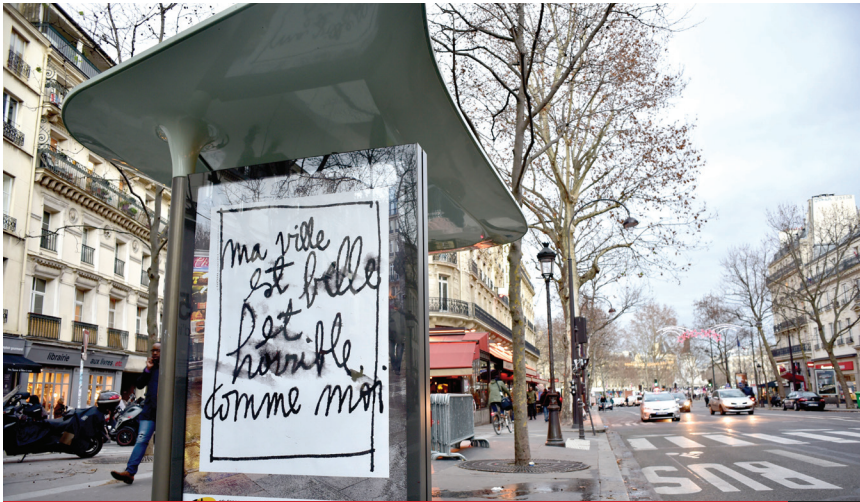 ma ville
est belle
et
horrible,
comme moi
librairie
BUS